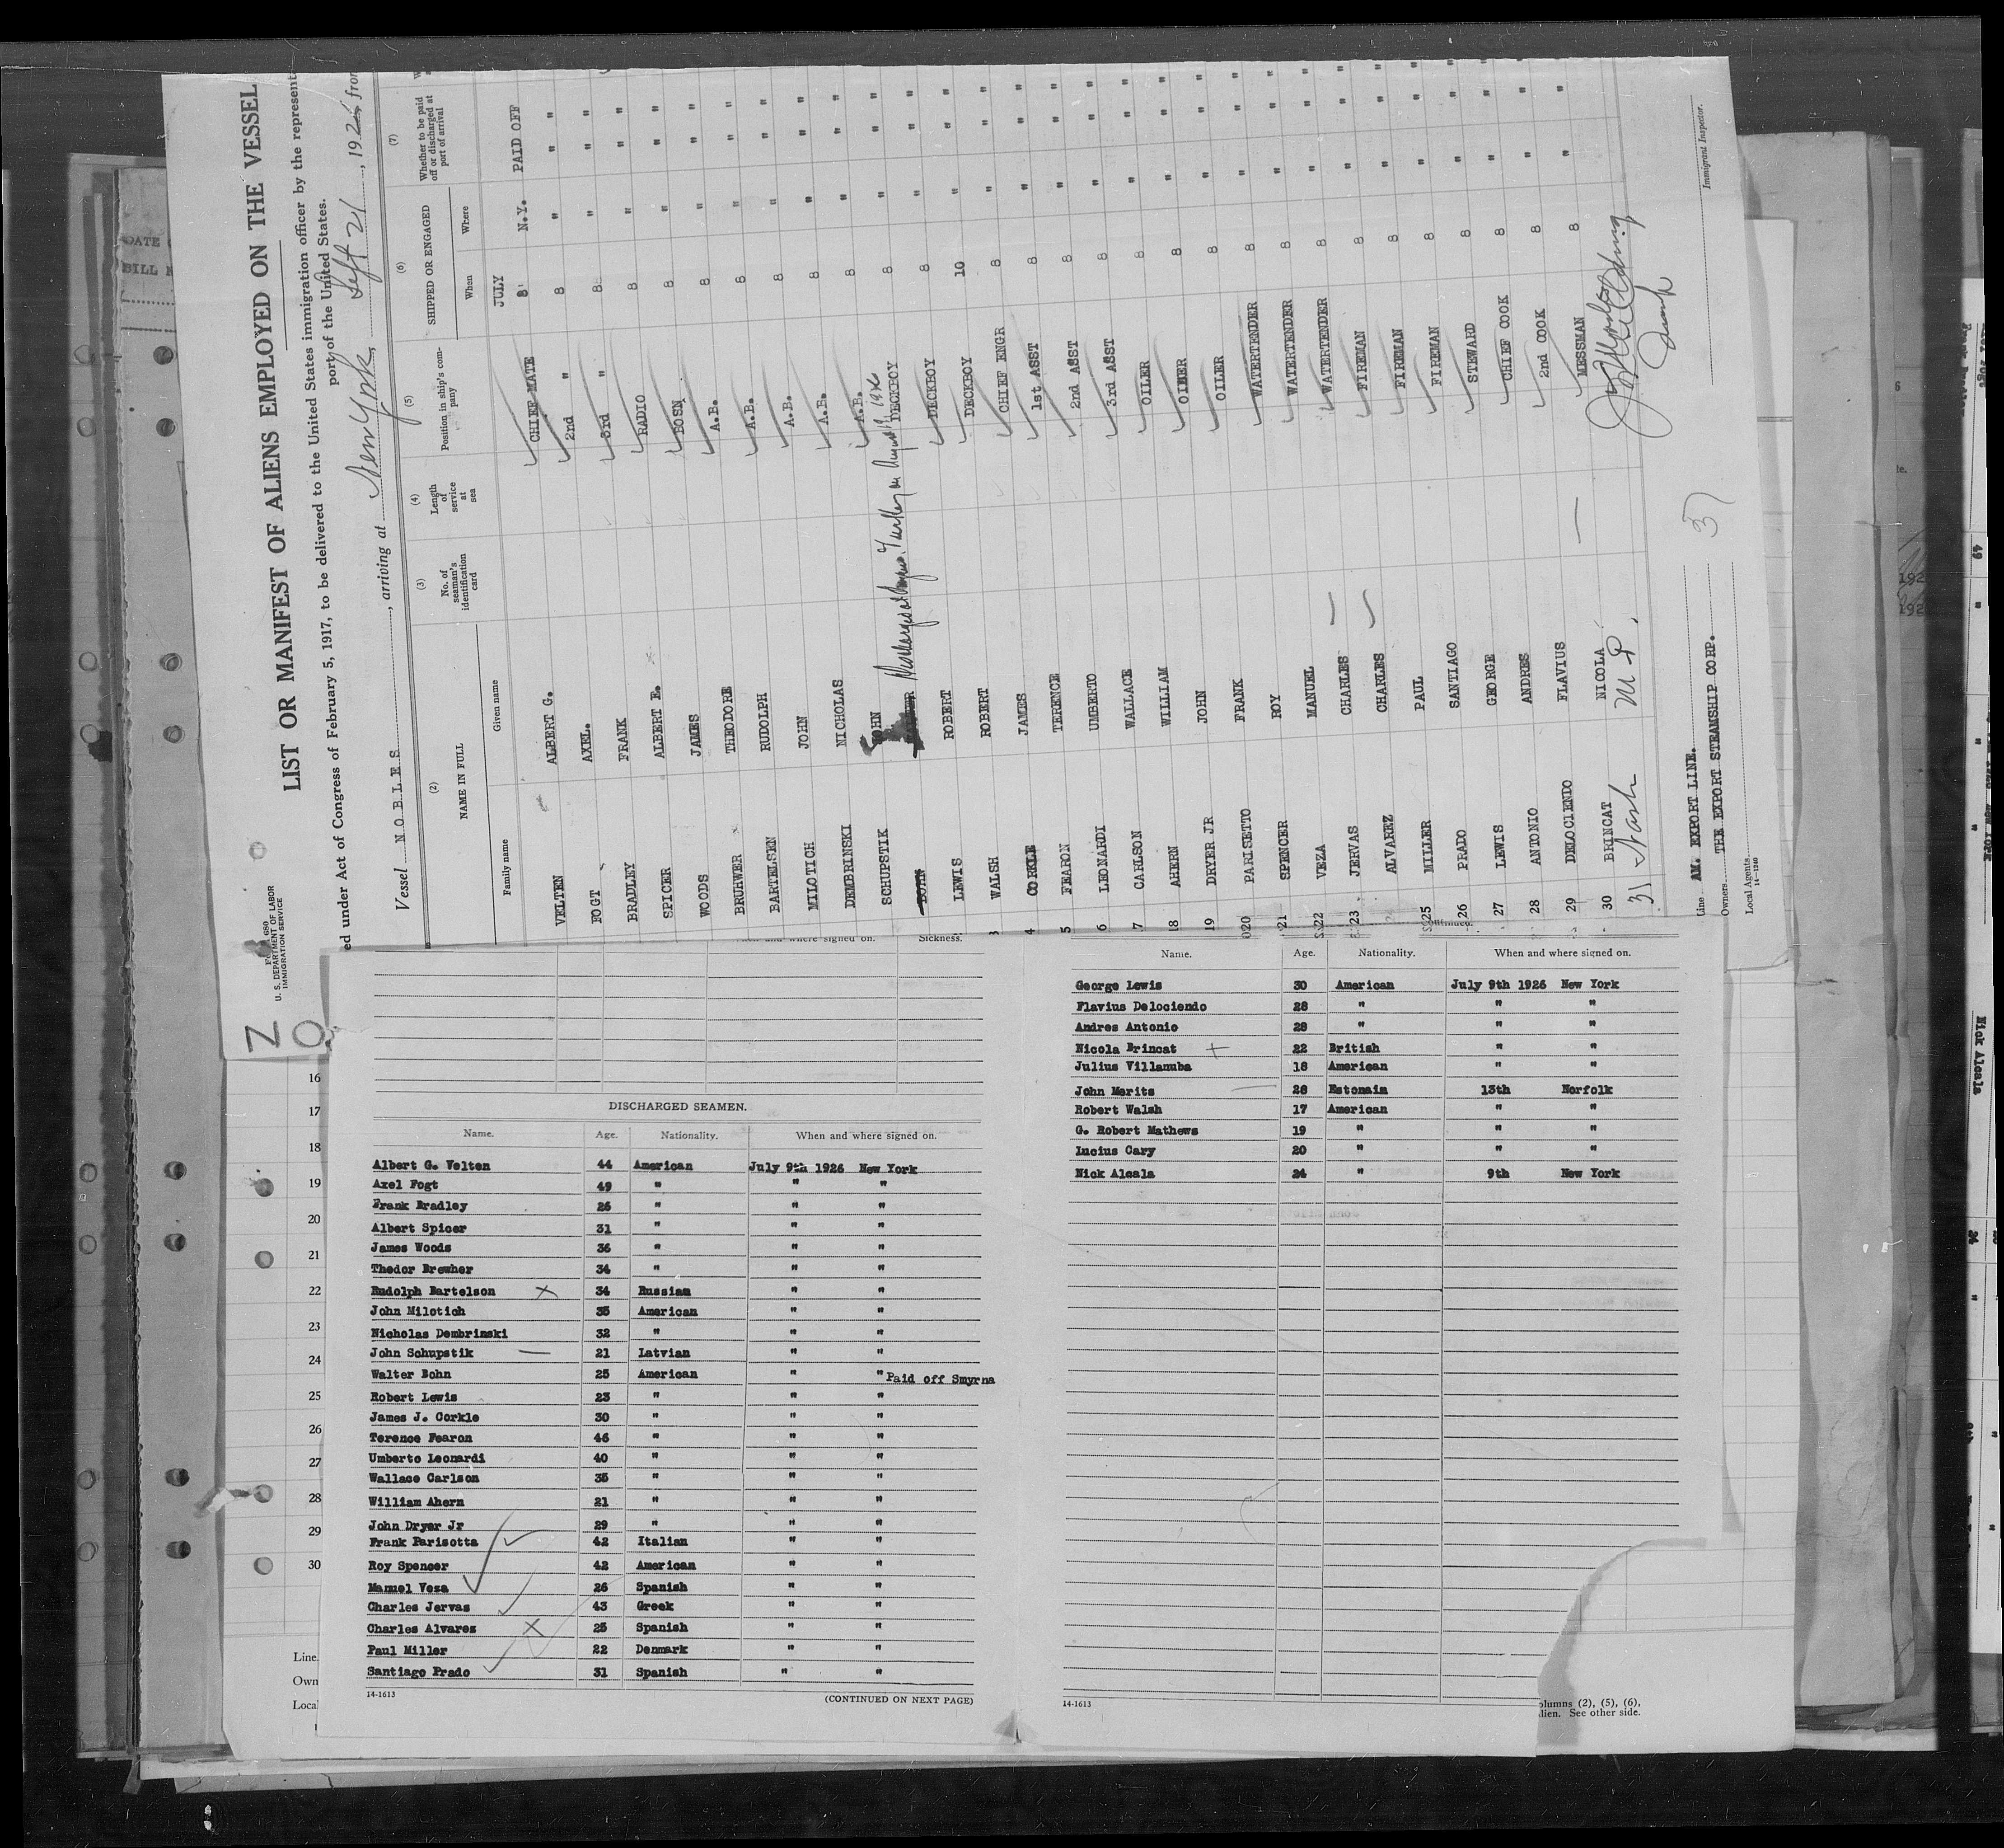 LIST OR MANIFEST OF ALIENS EMPLOYED ON THE VESSEL
ed under Act of Congress of February 5, 1917, to be delivered to the United States immigration officer by the represent
port of the United States.
Vessel N.O.B.L.E.S, arriving at New York, Sept 21, 192 , from
U. S. DEPARTMENT OF LABOR
IMMIGRATION SERVICE
(2) (3) (4) (5) (6) (7)
NAME IN FULL No. of seaman's identification card Length of service at sea Position in ship's company SHIPPED OR ENGAGED Whether to be paid off or discharged at port of arrival
Family name Given name When Where
JULY
VELTEN ALBERT G. CHIEF MATE 8 N.Y. PAID OFF
FOGT AXEL. 2nd " 8 " " "
BRADLEY FRANK 3rd " 8 " " "
SPICER ALBERT E. RADIO 8 " " "
WOODS JAMES BOSN 8 " " "
BRUHWER THEODORE A.B. 8 " " "
BARTELSEN RUDOLPH A.B. 8 " " "
MILOTICH JOHN A.B. 8 " " "
DEMBRINSKI NICHOLAS A.B. 8 " " "
SCHUPSTIK JOHN A.B. 8 " " "
BOHN Discharged at Turkey on August 19 1926 DECKBOY 8 " " "
LEWIS ROBERT DECKBOY 8 " " "
WALSH ROBERT DECKBOY 10 " " "
4 CORKLE JAMES CHIEF ENGR 8 " " "
5 FEARON TERENCE 1st ASST 8 " " "
6 LEONARDI UMBERTO 2nd ASST 8 " " "
7 CARLSON WALLACE 3rd ASST 8 " " "
18 AHERN WILLIAM OILER 8 " " "
19 DRYER JR JOHN OILER 8 " " "
20 PARISETTO FRANK OILER 8 " " "
21 SPENCER ROY WATERTENDER 8 " " "
22 VEZA MANUEL WATERTENDER 8 " " "
23 JERVAS CHARLES WATERTENDER 8 " " "
ALVAREZ CHARLES FIREMAN 8 " " "
25 MILLER PAUL FIREMAN 8 " " "
26 PRADO SANTIAGO FIREMAN 8 " " "
27 LEWIS GEORGE STEWARD 8 " " "
28 ANTONIO ANDRES CHIEF COOK 8 " " "
29 DELOCIENDO FLAVIUS 2nd COOK 8 " " "
30 BRINCAT NICOLA MESSMAN 8 " " "
Line AM. EXPORT LINE.
Owners THE EXPORT STEAMSHIP CORP.
Local Agents
14-1240
Immigrant Inspector.
and where signed on. Sickness.
DISCHARGED SEAMEN.
Name. Age. Nationality. When and where signed on.
Albert G. Velten 44 American July 9th 1926 New York
Axel Fogt 49 " " "
Frank Bradley 26 " " "
Albert Spicer 31 " " "
James Woods 36 " " "
Thedor Brewher 34 " " "
Rudolph Bartelson 34 Russian " "
John Milotich 35 American " "
Nicholas Dembrinski 32 " " "
John Schupstik 21 Latvian " "
Walter Bohn 25 American " " Paid off Smyrna
Robert Lewis 23 " " "
James J. Corkle 30 " " "
Terence Fearon 46 " " "
Umberto Leonardi 40 " " "
Wallace Carlson 35 " " "
William Ahern 21 " " "
John Dryer Jr 29 " " "
Frank Parisotta 42 Italian " "
Roy Spencer 42 American " "
Manuel Veza 26 Spanish " "
Charles Jervas 43 Greek " "
Charles Alvarez 25 Spanish " "
Paul Miller 22 Denmark " "
Santiago Prado 31 Spanish " "
14-1613 (CONTINUED ON NEXT PAGE)
Continued.
Name. Age. Nationality. When and where signed on.
George Lewis 30 American July 9th 1926 New York
Flavius Delociendo 28 " " "
Andres Antonio 28 " " "
Nicola Brincat 22 British " "
Julius Villanuba 18 American " "
John Merits 28 Estonain 13th Norfolk
Robert Walsh 17 American " "
G. Robert Mathews 19 " " "
Lucius Cary 20 " " "
Nick Alcala 24 " 9th New York
14-1613
olumns (2), (5), (6),
lien. See other side.
16
17
18
19
20
21
22
23
24
25
26
27
28
29
30
Line
Own
Local
DATE
BILL
192
192
Nick Alcala
49
24